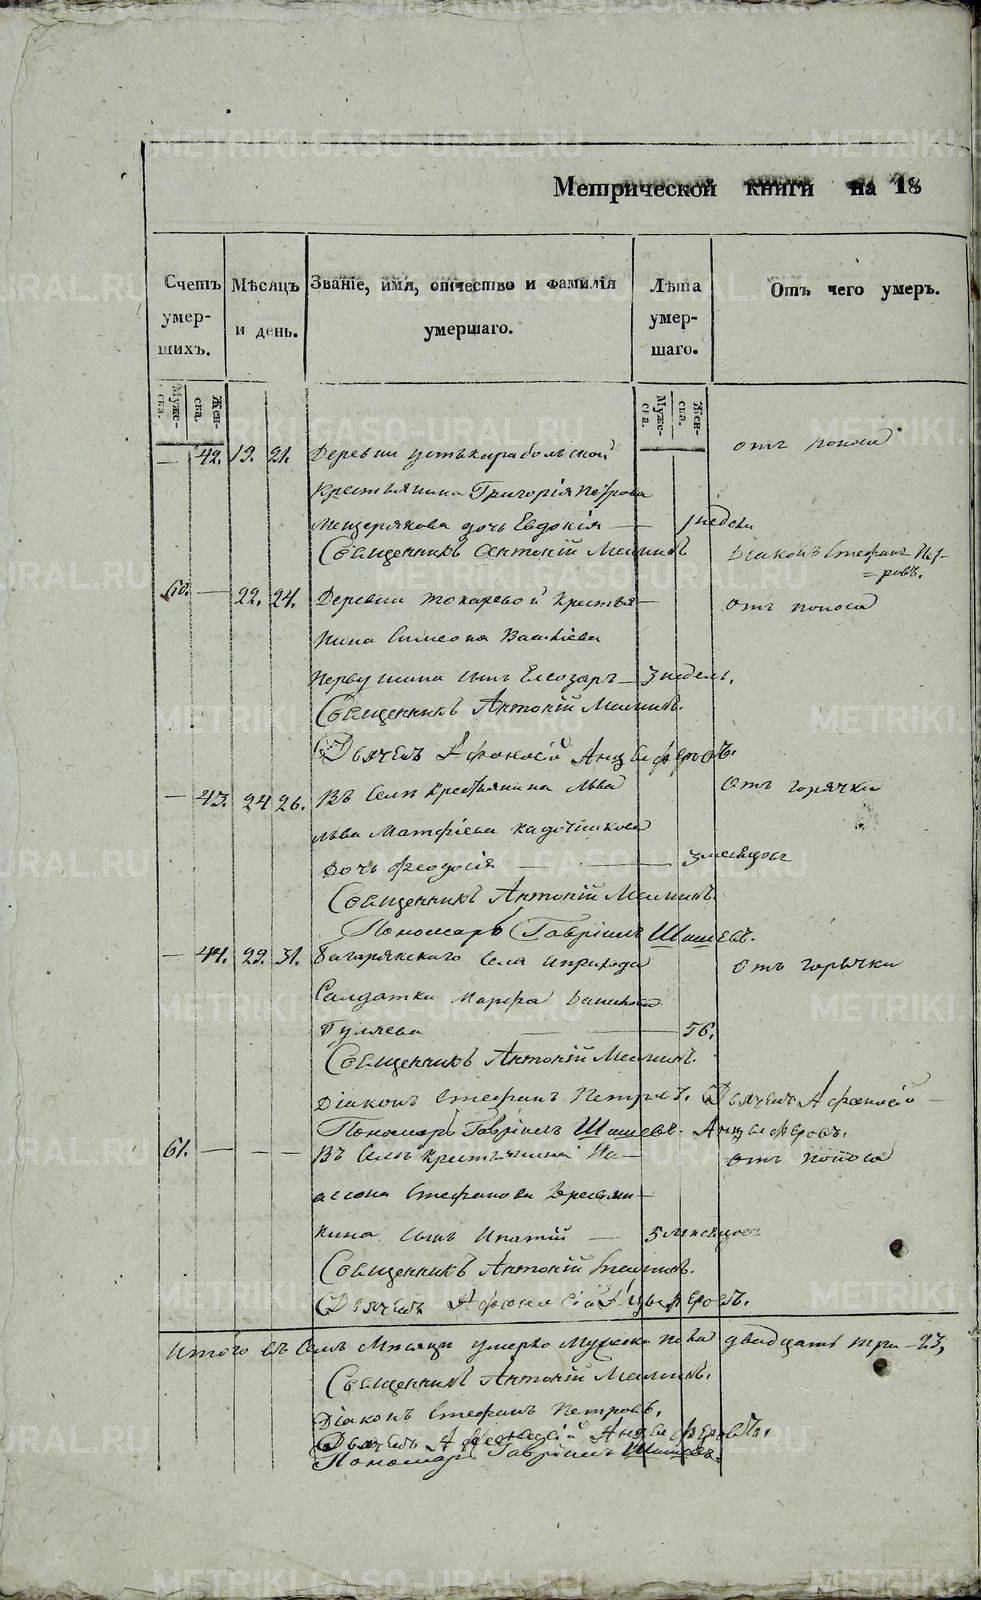 Метрической книги на 18
Счетъ умершихъ.
Мѣсяцъ и день.
Званіе, имя, отчество и фамилія умершаго.
Лѣта умершаго.
Отъ чего умеръ.
Мужеска. Женска.
Мужеска. Женска.
— 42. 19. 21. Деревни Устькарабольской отъ поноса
Крестьянина Григорія Петрова
Мещерякова дочь Евдокія — 1 недели
Священникъ Антоній Діаконъ Стефанъ Петровъ.
60. — 22. 24. Деревни Токаревой Крестья- отъ поноса
нина Симеона
Первушина сынъ Елеозаръ — 3 недель.
Священникъ Антоній
Дьячекъ Афонасій Анцыферовъ.
— 43. 24 26. Въ Селѣ Крестьянина Льва отъ горячки
Льва Матфіева Кадочникова
дочь Феодосія — 3 месяцовъ
Священникъ Антоній
Пономарь Гавріилъ Шишевъ.
— 44. 29. 31. Багарякскаго Села и прихода отъ горячки
Салдатка Марфа
Гуляева — 56.
Священникъ Антоній
Діаконъ Стефанъ Петровъ. Дьячекъ Афонасій
Пономарь Гавріилъ Шишевъ. Анцыферовъ.
61. — — — Въ Селѣ Крестьянина отъ поноса
Стефанова
кина сынъ Ипатій — 5 месяцовъ
Священникъ Антоній
Дьячекъ Афонасій Анцыферовъ.
Итого въ Семъ Месяце умерло Мужеска пола двадцать три — 23,
Священникъ Антоній
Діаконъ Стефанъ Петровъ.
Дьячекъ Афонасій Анцыферовъ.
Пономарь Гавріилъ Шишевъ.
METRIKI.GASO-URAL.RU